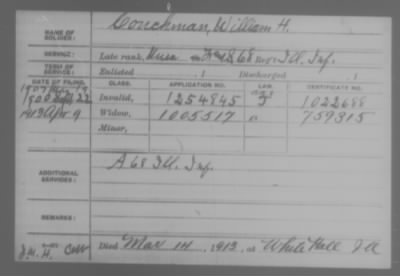 Couchman, William H.
NAME OF SOLDIER:
SERVICE: Late rank, Musc F & S 68 Reg't Ill. Inf.
TERM OF SERVICE: Enlisted , 1 Discharged , 1
DATE OF FILING. CLASS. APPLICATION NO. LAW. CERTIFICATE NO.
Invalid, 1254845 1022688
1913 Apr 9 Widow, 1005517 " 759315
Minor,
ADDITIONAL SERVICES: A 68 Ill. Inf.
REMARKS:
Died Mar 14, 1913, at White Hall Ill